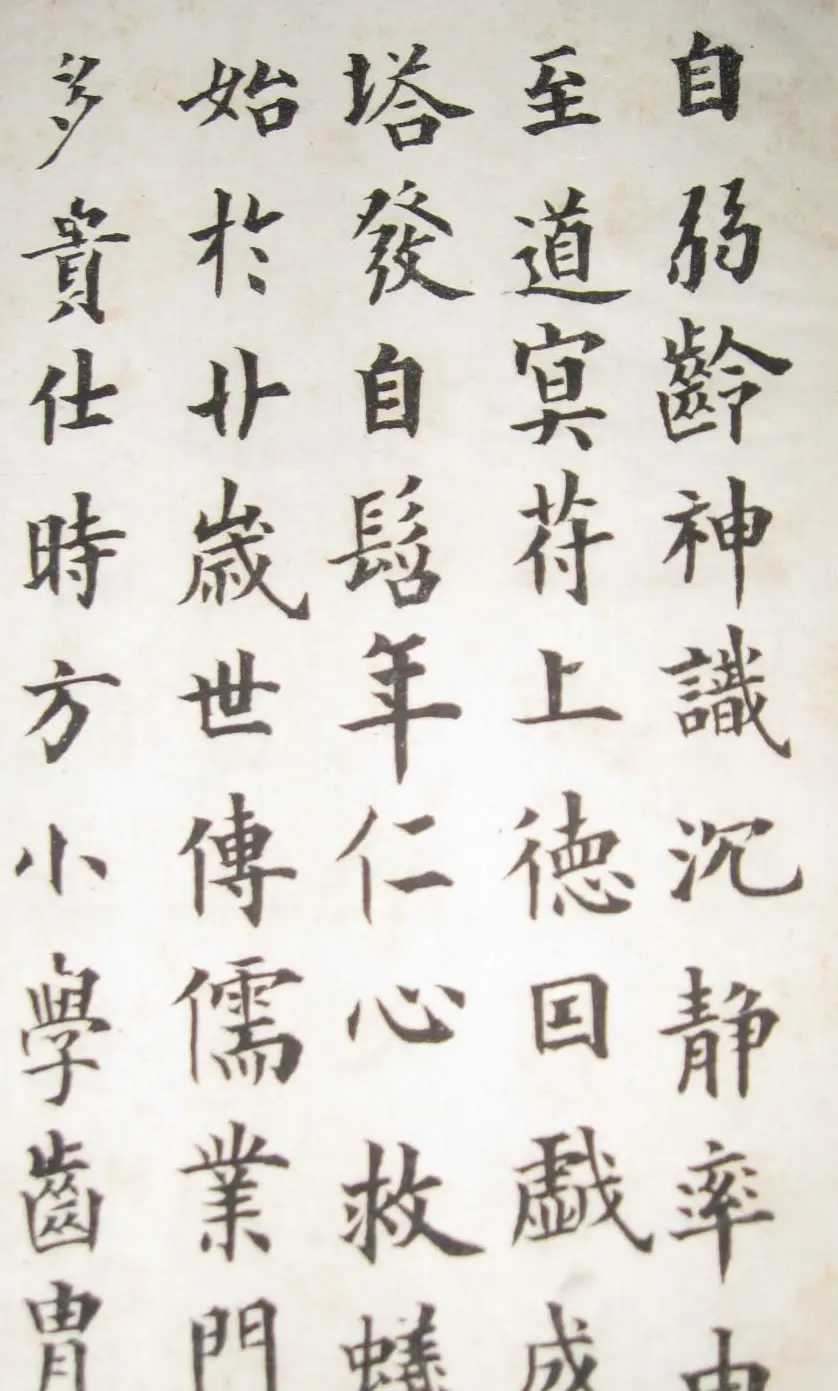 自弱齡神識沉静率由
至道冥苻上德因戯成
塔發自髫年仁心救蟻
始於廿歲世傳儒業門
多貴仕時方小學齒胄